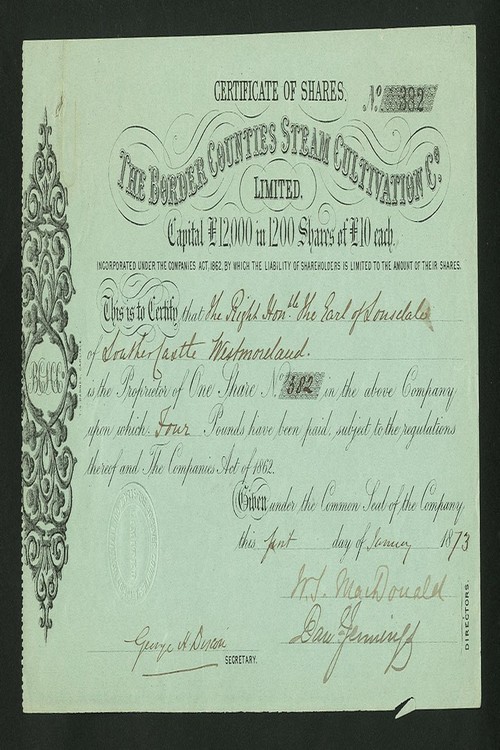 CERTIFICATE OF SHARES.
No. 382
THE BORDER COUNTIES STEAM CULTIVATION Co.
LIMITED.
Capital £12,000 in 1200 Shares of £10 each.
INCORPORATED UNDER THE COMPANIES ACT, 1862, BY WHICH THE LIABILITY OF SHAREHOLDERS IS LIMITED TO THE AMOUNT OF THEIR SHARES.
This is to Certify that The Right Honble The Earl of Lonsdale
of Lowther Castle Westmoreland.
is the Proprietor of One Share No. 382 in the above Company
upon which Four Pounds have been paid, subject to the regulations
thereof and The Companies Act of 1862.
Given under the Common Seal of the Company
this first day of January 1873
W. J. MacDonald
George H Dixon
SECRETARY.
DIRECTORS.